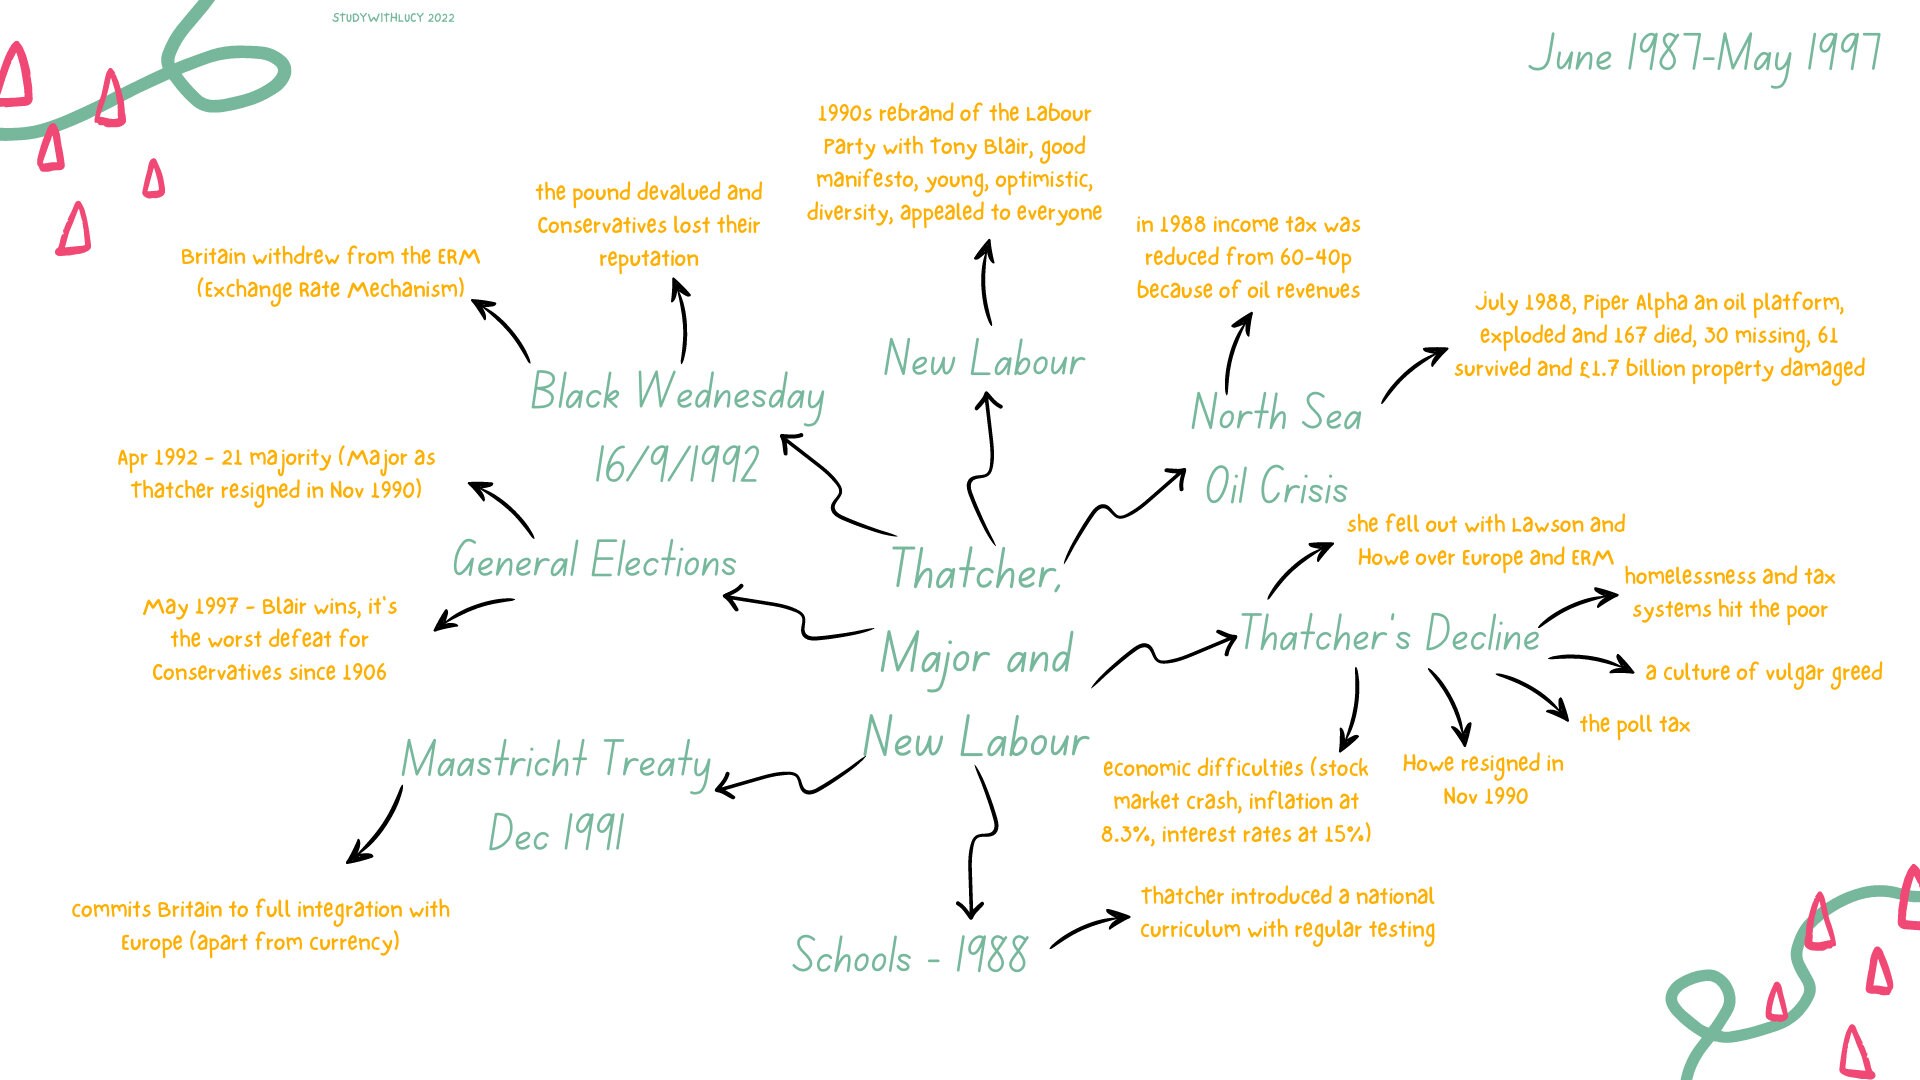 STUDYWITHLUCY 2022
June 1987-May 1997
1990s rebrand of the Labour
Party with Tony Blair, good
manifesto, young, optimistic,
diversity, appealed to everyone
the pound devalued and
Conservatives lost their
reputation
Britain withdrew from the ERM
(Exchange Rate Mechanism)
in 1988 income tax was
reduced from 60-40p
because of oil revenues
July 1988, Piper Alpha an oil platform,
exploded and 167 died, 30 missing, 61
survived and £1.7 billion property damaged
New Labour
Black Wednesday
16/9/1992
North Sea
Oil Crisis
Apr 1992 - 21 majority (Major as
Thatcher resigned in Nov 1990)
General Elections
May 1997 - Blair wins, it's
the worst defeat for
Conservatives since 1906
Thatcher,
Major and
New Labour
she fell out with Lawson and
Howe over Europe and ERM
homelessness and tax
systems hit the poor
Thatcher's Decline
a culture of vulgar greed
the poll tax
Howe resigned in
Nov 1990
economic difficulties (stock
market crash, inflation at
8.3%, interest rates at 15%)
Maastricht Treaty
Dec 1991
commits Britain to full integration with
Europe (apart from currency)
Schools - 1988
Thatcher introduced a national
curriculum with regular testing